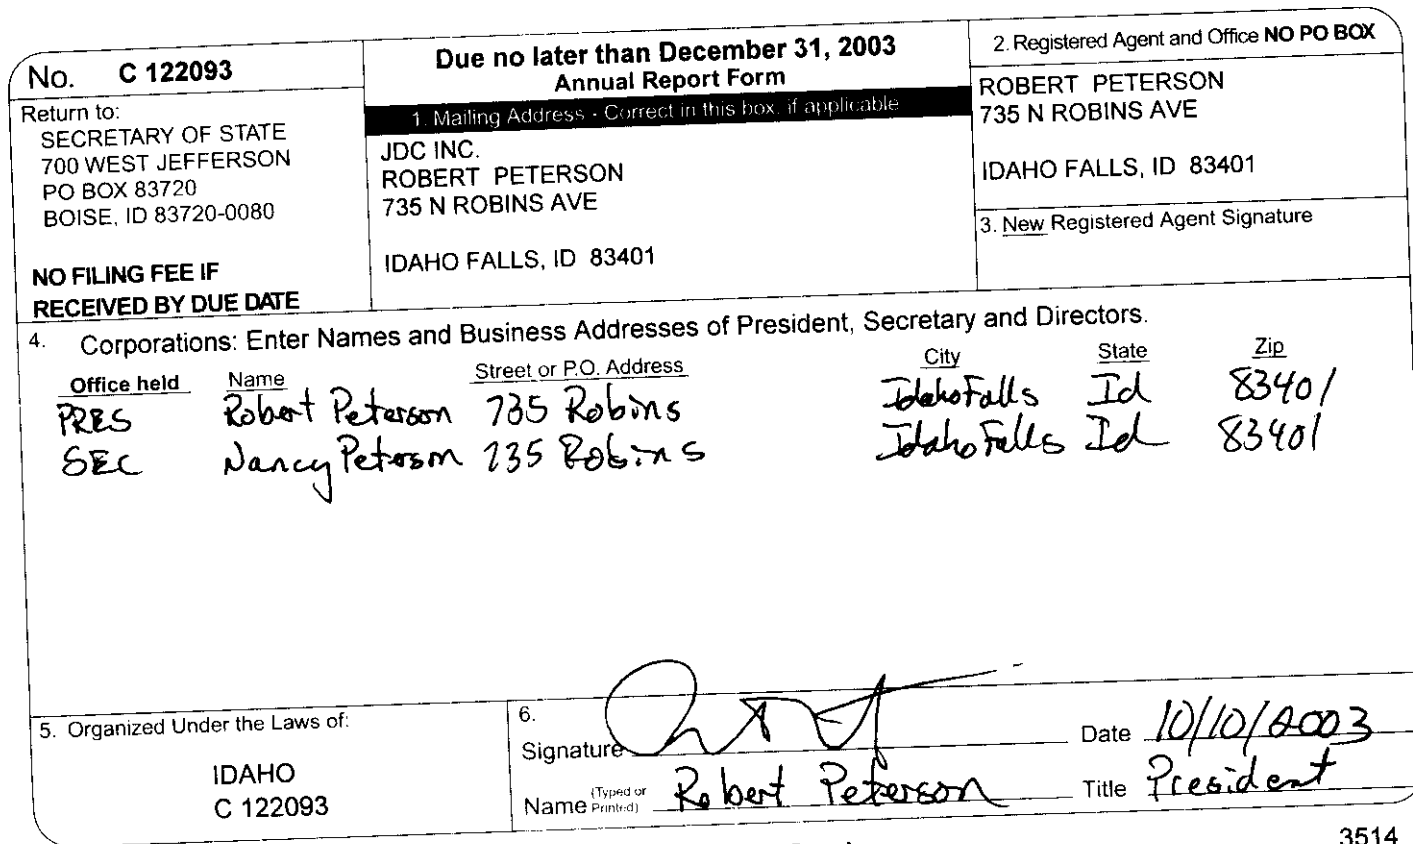 No. C 122093
Return to:
SECRETARY OF STATE
700 WEST JEFFERSON
PO BOX 83720
BOISE, ID 83720-0080
NO FILING FEE IF
RECEIVED BY DUE DATE
Due no later than December 31, 2003
Annual Report Form
1. Mailing Address - Correct in this box, if applicable
JDC INC.
ROBERT PETERSON
735 N ROBINS AVE
IDAHO FALLS, ID 83401
2. Registered Agent and Office NO PO BOX
ROBERT PETERSON
735 N ROBINS AVE
IDAHO FALLS, ID 83401
3. New Registered Agent Signature
4. Corporations: Enter Names and Business Addresses of President, Secretary and Directors.
Office held Name Street or P.O. Address City State Zip
PRES Robert Peterson 735 Robins Idaho Falls Id 83401
SEC Nancy Peterson 735 Robins Idaho Falls Id 83401
5. Organized Under the Laws of:
IDAHO
C 122093
6.
Signature Date 10/10/2003
Name (Typed or Printed) Robert Peterson Title President
3514